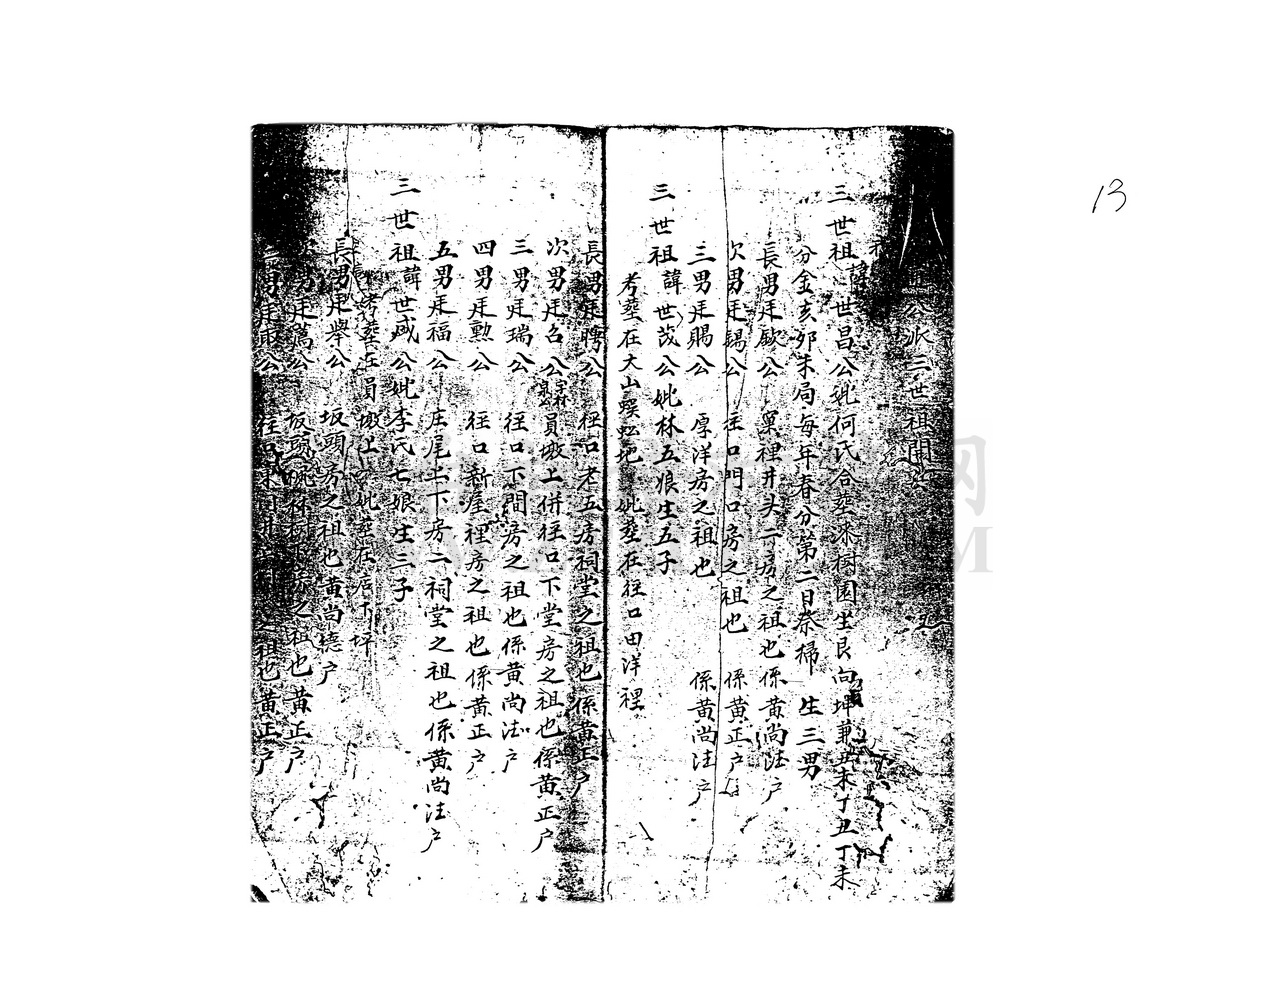 13
公派三世祖開
三世祖諱世昌公妣何氏合墓漆樹園坐艮向坤兼丑未丁丑丁未
分金亥卯未局每年春分第二日祭掃 生三男
長男廷歐公 巢裡井头二房之祖也係黃尚法户
次男廷錫公 往口門口房之祖也 係黃正户
三男廷賜公 厚洋房之祖也 係黃尚法户
三世祖諱世茂公妣林五娘生五子
考墓在大山蜈蚣地 妣墓在往口田洋裡
長男廷聘公 往口老五房祠堂之祖也係黃正户
次男廷名公 員墩上併往口下堂房之祖也係黃正户
三男廷瑞公 往口下間房之祖也係黃尚法户
四男廷勲公 往口新厝裡房之祖也係黃正户
五男廷福公 庄尾出下房二祠堂之祖也係黃尚法户
三世祖諱世咸公妣李氏七娘生三子
考墓在員墩上 妣墓在店下坪
長男廷舉公 坂頭房之祖也黃尚德户
男廷薦公 坂頭 林 房之祖也黃正户
三男廷 公 往口 之祖也黃正户